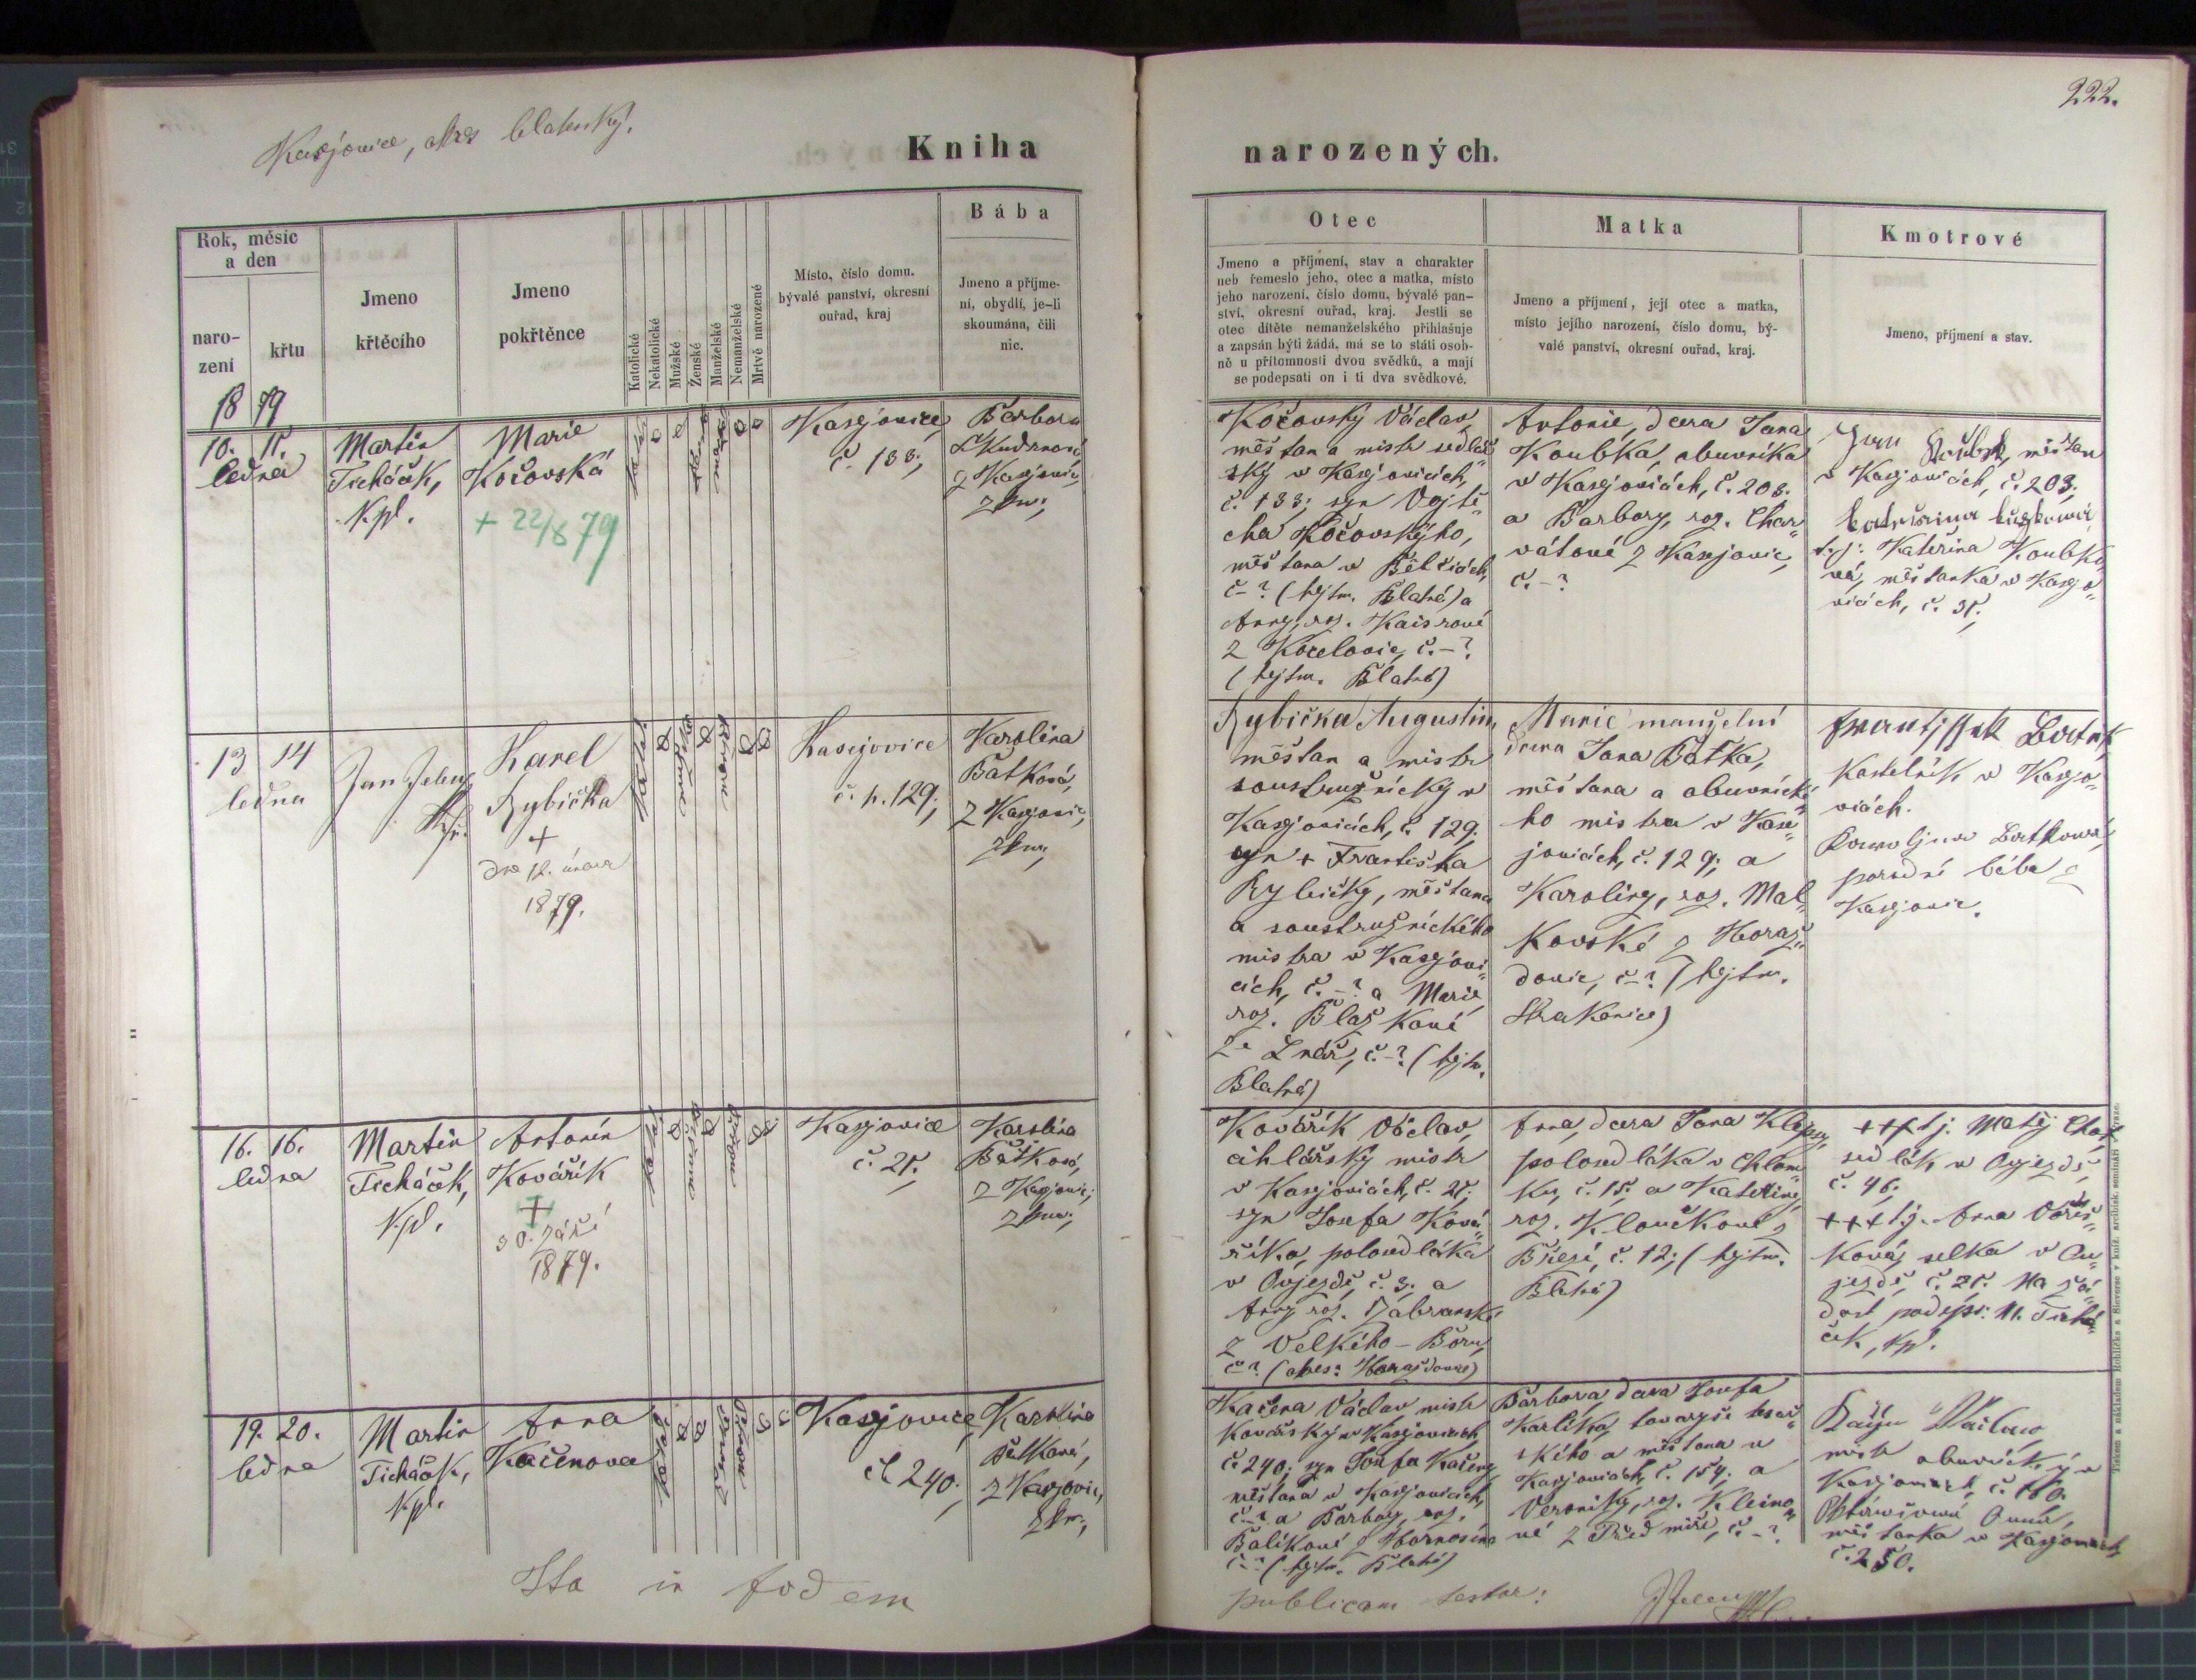 222.
Kasejovice, okres blatenský.
Kniha narozených.
Rok, měsíc
a den
naro-
zení
křtu
Jmeno
křtěcího
Jmeno
pokřtěnce
Katolické
Nekatolické
Mužské
Ženské
Manželské
Nemanželské
Mrtvě narozené
Místo, číslo domu.
bývalé panství, okresní
ouřad, kraj
Bába
Jmeno a příjme-
ní, obydlí, je-li
skoumána, čili
nic.
Otec
Jmeno a příjmení, stav a charakter
neb řemeslo jeho, otec a matka, místo
jeho narození, číslo domu, bývalé pan-
ství, okresní ouřad, kraj. Jestli se
otec dítěte nemanželského přihlašuje
a zapsán býti žádá, má se to státi osob-
ně u přítomnosti dvou svědků, a mají
se podepsati on i ti dva svědkové.
Matka
Jmeno a příjmení, její otec a matka,
místo jejího narození, číslo domu, bý-
valé panství, okresní ouřad, kraj.
Kmotrové
Jmeno, příjmení a stav.
1879
10. 11.
ledna
Martin
Ticháček,
Kpl.
Marie
Kočovská
+ 22/8 79
Kasejovice
č. 133;
Barbora
z Kasejovic,
zkou;
Kočovský Václav,
měštan a mistr sedlář„
ský v Kasejovicích,
č. 133; syn Vojtě„
cha Kočovského,
měštana v Bělčicích,
č.-? (hejtm. Blatná) a
Anny, roz. Kaisrové
z Kocelovic, č.-?
(hejtm. Blatná)
Antonie, dcera Jana
Koubka, obuvníka
v Kasejovicích, č. 203.
a Barbory, roz. Char„
vátové z Kasejovic,
č.-?
Jan Koubek, měštan
v Kasejovicích, č. 203,
t.j: Kateřina Koubko„
vá, měštanka v Kasejo„
vicích, č. 31;
13 14
ledna
Jan Jelen
Karel
Rybička
+
dne 12. února
1879.
Kasejovice
č. p. 129;
Karolina
Batková,
z Kasejovic,
zkou;
Rybička Augustin,
měštan a mistr
soustružnický v
Kasejovicích, č. 129.
syn + Františka
Rybičky, měštana
a soustružnického
mistra v Kasejovi„
cích, č.-? a Marie,
roz. Blažkové
ze Lnář, č.-? (hejtm.
Blatná)
Marie manželní
dcera Jana Batka,
měštana a obuvnické„
ho mistra v Kase„
jovicích, č. 129; a
Karoliny, roz. Mal„
kovské z Horaž„
ďovic, č.-? (hejtm.
Strakonice)
Frantissek Batěk
kostelník v Kasejo„
vicích.
Karolina Batkowá,
porodní bába z
Kasejovic.
16. 16.
ledna
Martin
Ticháček,
Kpl.
Antonín
Kovářík
+
30. září
1879.
Kasejovice
č. 21.
Karolina
Batková,
z Kasejovic,
zkou;
Kovářík Václav,
cihlářský mistr
v Kasejovicích, č. 21;
syn Josefa Ková„
říka, polousedláka
v Oujezdě, č. 3. a
Anny roz. Dábranské
z Velkého-Boru,
č.-? (okres: Horažďovice)
Anna, dcera Jana
polousedláka v Chlum„
ku, č. 15. a Kateřiny,
roz. Kloučkové z
Březí, č. 12; (hejtm.
Blatná)
+++ t.j. Matěj
sedlák v Oujezdě,
č. 46;
+++ t.j. Anna Voříš„
ková, selka v Ou„
jezdě, č. 21. Na žá„
dost podeps: M. Tichá„
ček, kpl.
19. 20.
ledna
Martin
Ticháček,
Kpl.
Anna
Kačenova
Kasejovice
č. 240.
Karolina
Batková,
z Kasejovic,
zkou;
Kačena Václav, mistr
kovářský v Kasejovicích
č. 240; syn Josefa Kačeny,
měštana v Kasejovicích,
č.-? a Barbory, roz.
Balíkové z Hornosína
č.-? (hejtm. Blatná)
Barbora, dcera Josefa
Karlíka, tovaryše tesař„
ského a měštana v
Kasejovicích, č. 154; a
Veroniky, roz. Kleino„
vé z Předmíře, č.-?
mistr obuvnický v
Kasejovicích, č. 160.
Anna,
měštanka v Kasejovicích,
č. 250.
Ita in fodem
publicam testor:
Tiskem a nákladem Rohlíčka a Sieverse v kníž. arcibisk. semináři v Praze.